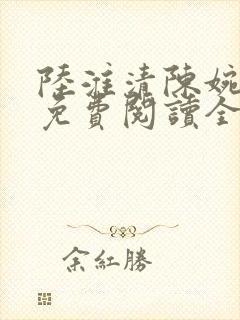 陸淮清陳婉
免費閱讀全
余紅勝